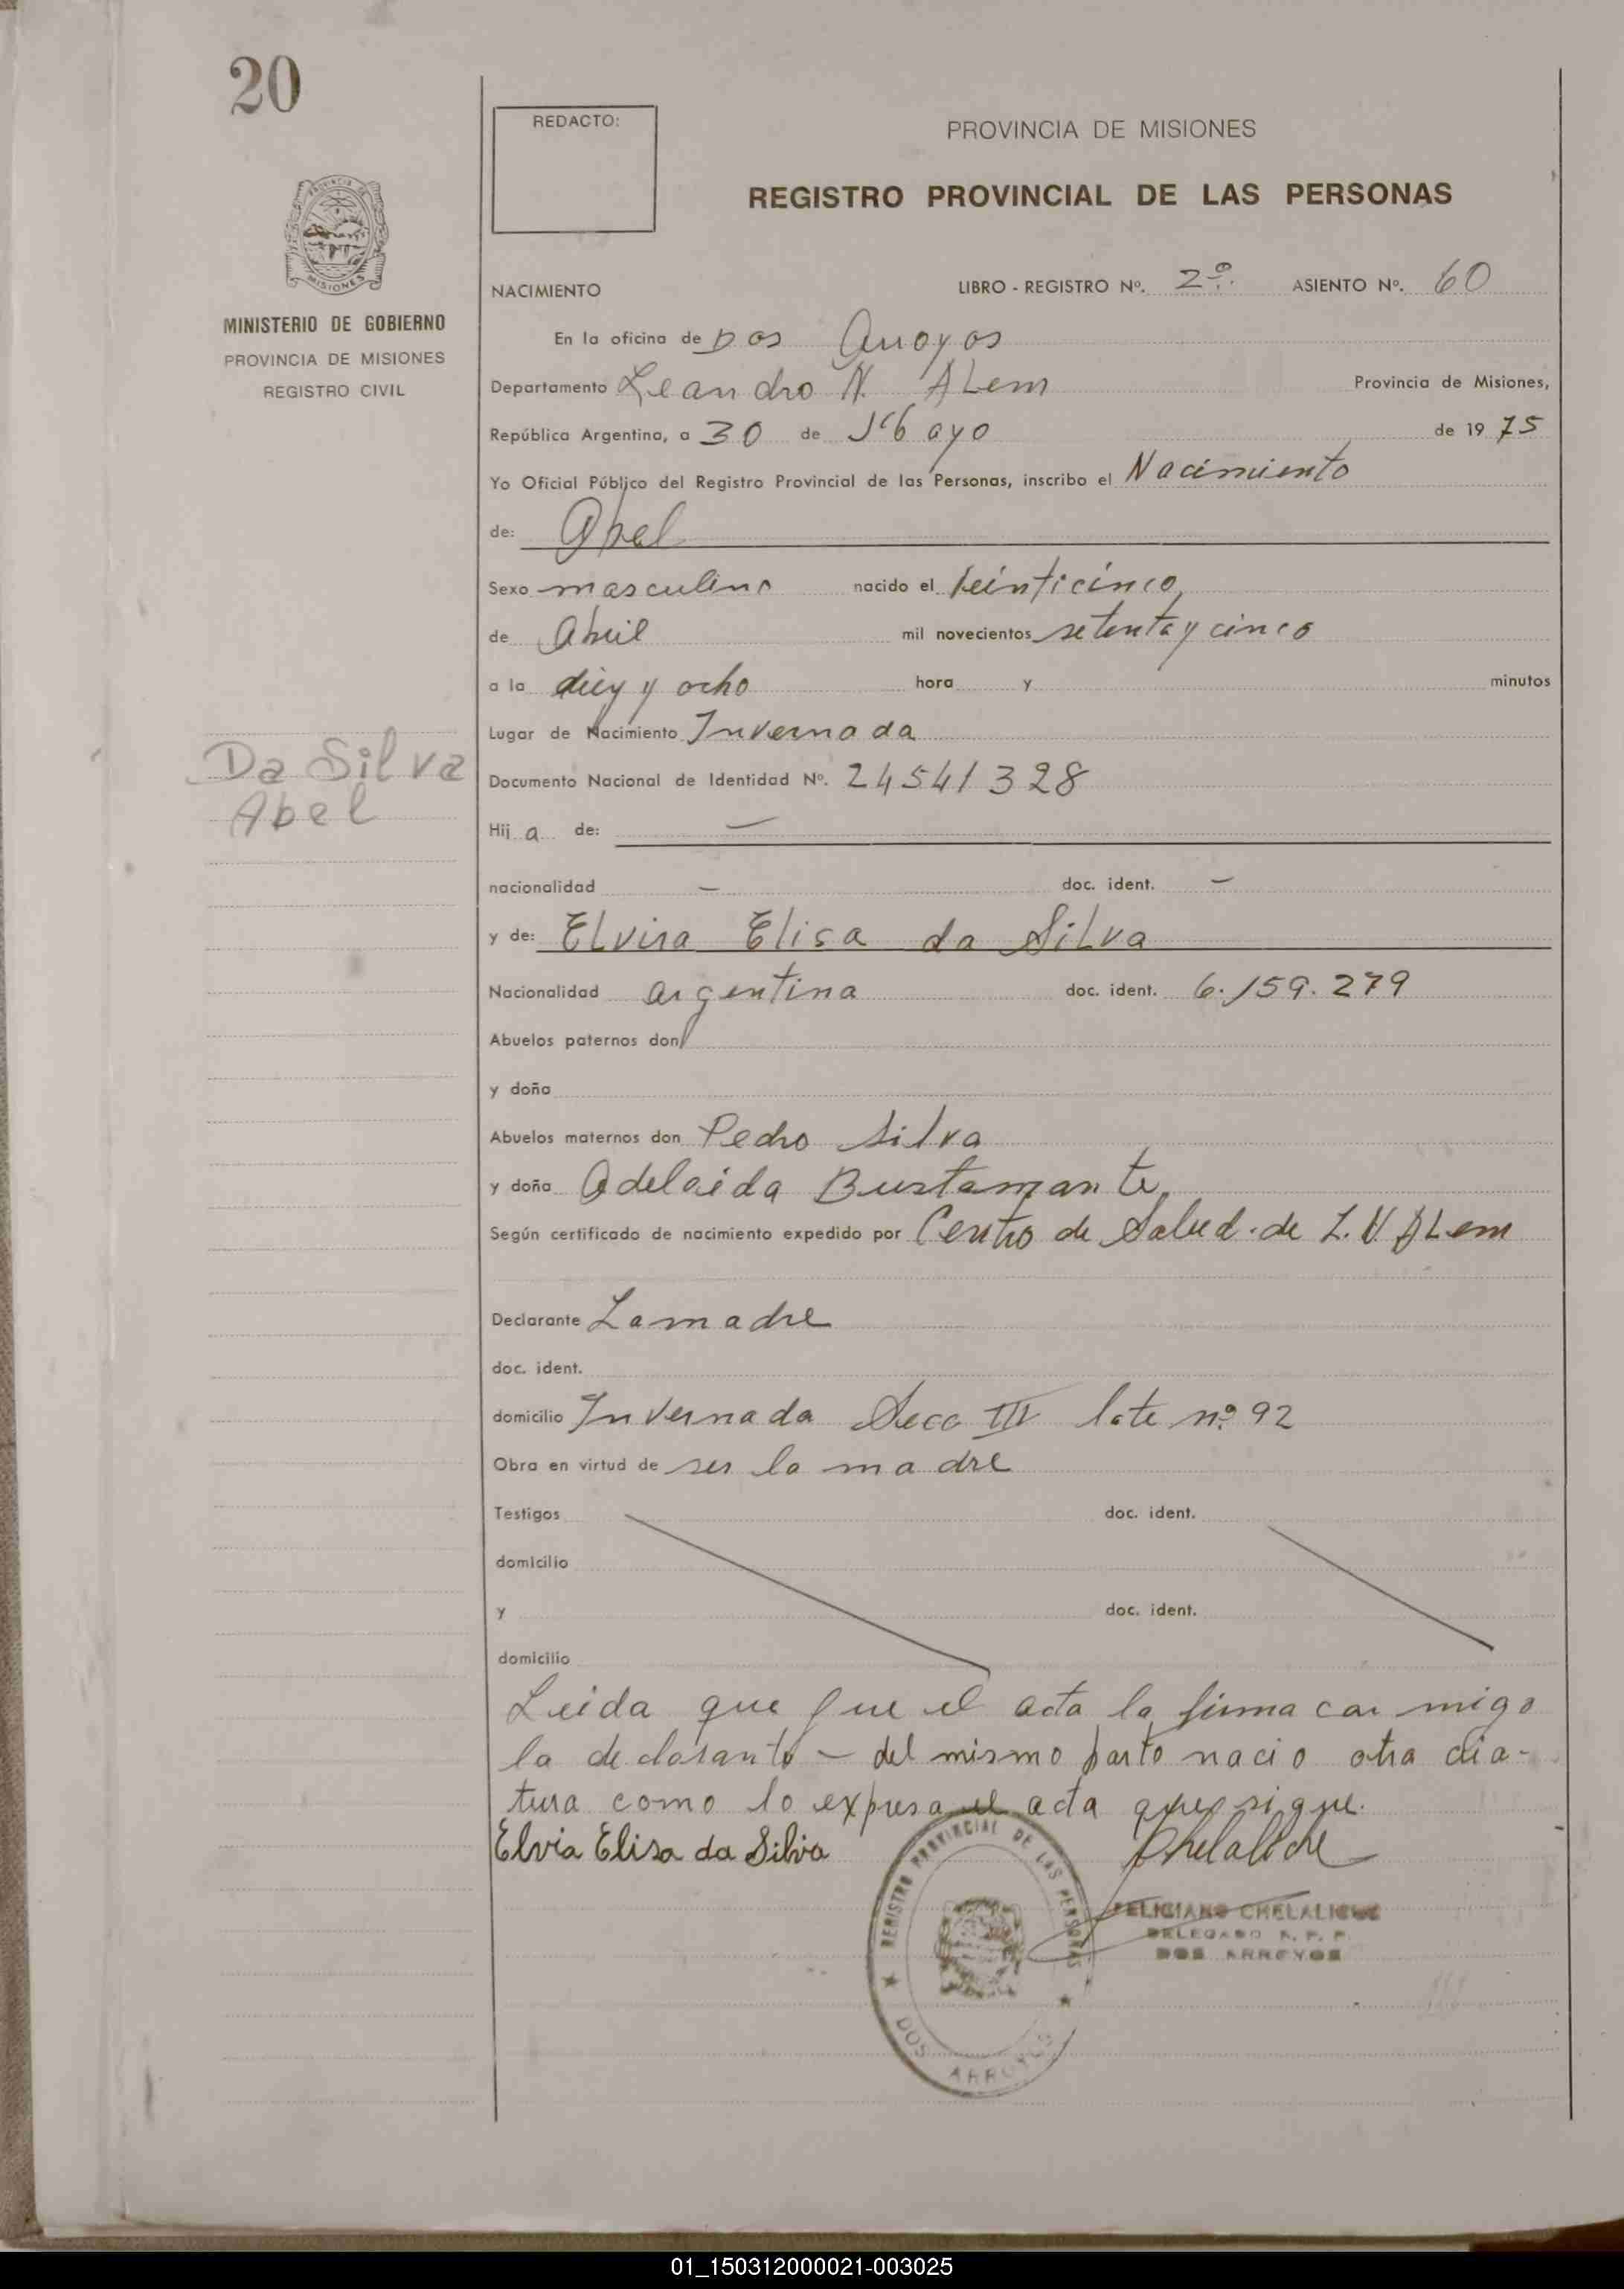 20
REDACTO:
PROVINCIA DE MISIONES
REGISTRO PROVINCIAL DE LAS PERSONAS
PROVINCIA DE
MISIONES
MINISTERIO DE GOBIERNO
PROVINCIA DE MISIONES
REGISTRO CIVIL
NACIMIENTO LIBRO - REGISTRO Nº. 2º. ASIENTO Nº. 60
En la oficina de Dos Arroyos
Departamento Leandro N. ALem Provincia de Misiones,
República Argentina, a 30 de Mayo de 1975
Yo Oficial Público del Registro Provincial de las Personas, inscribo el Nacimiento
de: Abel
Sexo masculino nacido el Veinticinco
de Abril mil novecientos setenta y cinco
a la diez y ocho hora y minutos
Lugar de Nacimiento Invernada
Da Silva
Abel
Documento Nacional de Identidad Nº. 24541328
Hij a de: —
nacionalidad — doc. ident. —
y de: ELvira Elisa da SiLva
Nacionalidad argentina doc. ident. 6.159.279
Abuelos paternos don
y doña
Abuelos maternos don Pedro Silva
y doña Adelaida Bustamante
Según certificado de nacimiento expedido por Centro de Salud. de L. N ALem
Declarante La madre
doc. ident.
domicilio Invernada Secc III lote nº 92
Obra en virtud de ser la madre
Testigos doc. ident.
domicilio
y doc. ident.
domicilio
Leida que fue el acta la firma con migo
la declarante — del mismo parto nacio otra cria-
tura como lo expresa el acta que sigue.
Elvia Elisa da Silva Chelaliche
REGISTRO PROVINCIAL DE LAS PERSONAS
DOS ARROYOS
FELICIANO CHELALICHE
DELEGADO R. P. P.
DOS ARROYOS
01_150312000021-003025